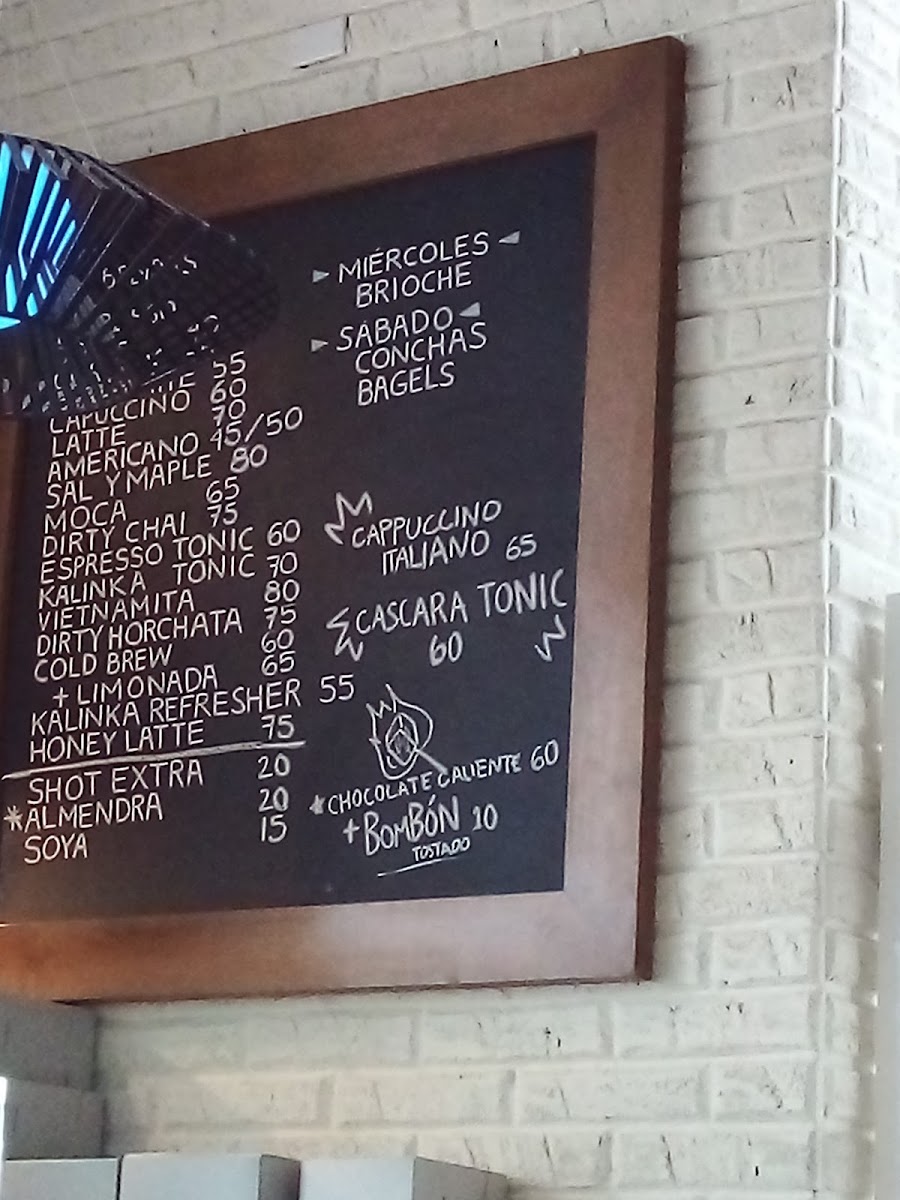 55
CAPUCCINO 60
LATTE 70
AMERICANO 45/50
SAL Y MAPLE 80
MOCA 65
DIRTY CHAI 75
ESPRESSO TONIC 60
KALINKA TONIC 70
VIETNAMITA 80
DIRTY HORCHATA 75
COLD BREW 60
+ LIMONADA 65
KALINKA REFRESHER 55
HONEY LATTE 75
SHOT EXTRA 20
*ALMENDRA 20
SOYA 15
MIÉRCOLES
BRIOCHE
SÁBADO
CONCHAS
BAGELS
CAPPUCCINO
ITALIANO 65
CASCARA TONIC
60
*CHOCOLATE CALIENTE 60
+BOMBÓN 10
TOSTADO